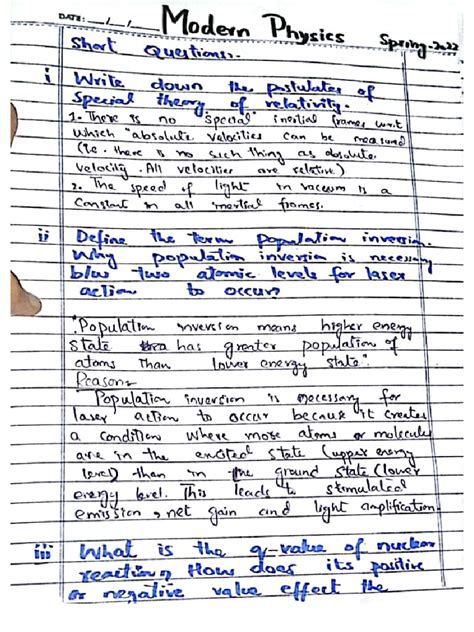 DATE: __/__/__ Modern Physics Spring-2022
Short Questions:-
i Write down the postulates of
Special theory of relativity.
1. There is no "special" inertial frames w.r.t
which "absolute velocities can be measured
(i.e. there is no such thing as absolute
velocity. All velocities are relative)
2. The speed of light in vaccum is a
Constant in all inertial frames.
ii Define the term population inversion.
Why population inversion is necessary
b/w two atomic levels for laser
action to occur?
"Population inversion means higher energy
state has greater population of
atoms than lower energy state".
Reason:-
Population inversion is necessary for
laser action to occur because it creates
a condition where more atoms or molecules
are in the excited state (upper energy
level) than in the ground state (lower
energy level. This leads to stimulated
emission, net gain and light amplification.
iii What is the q-value of nuclear
reaction, How does its positive
or negative value effect the